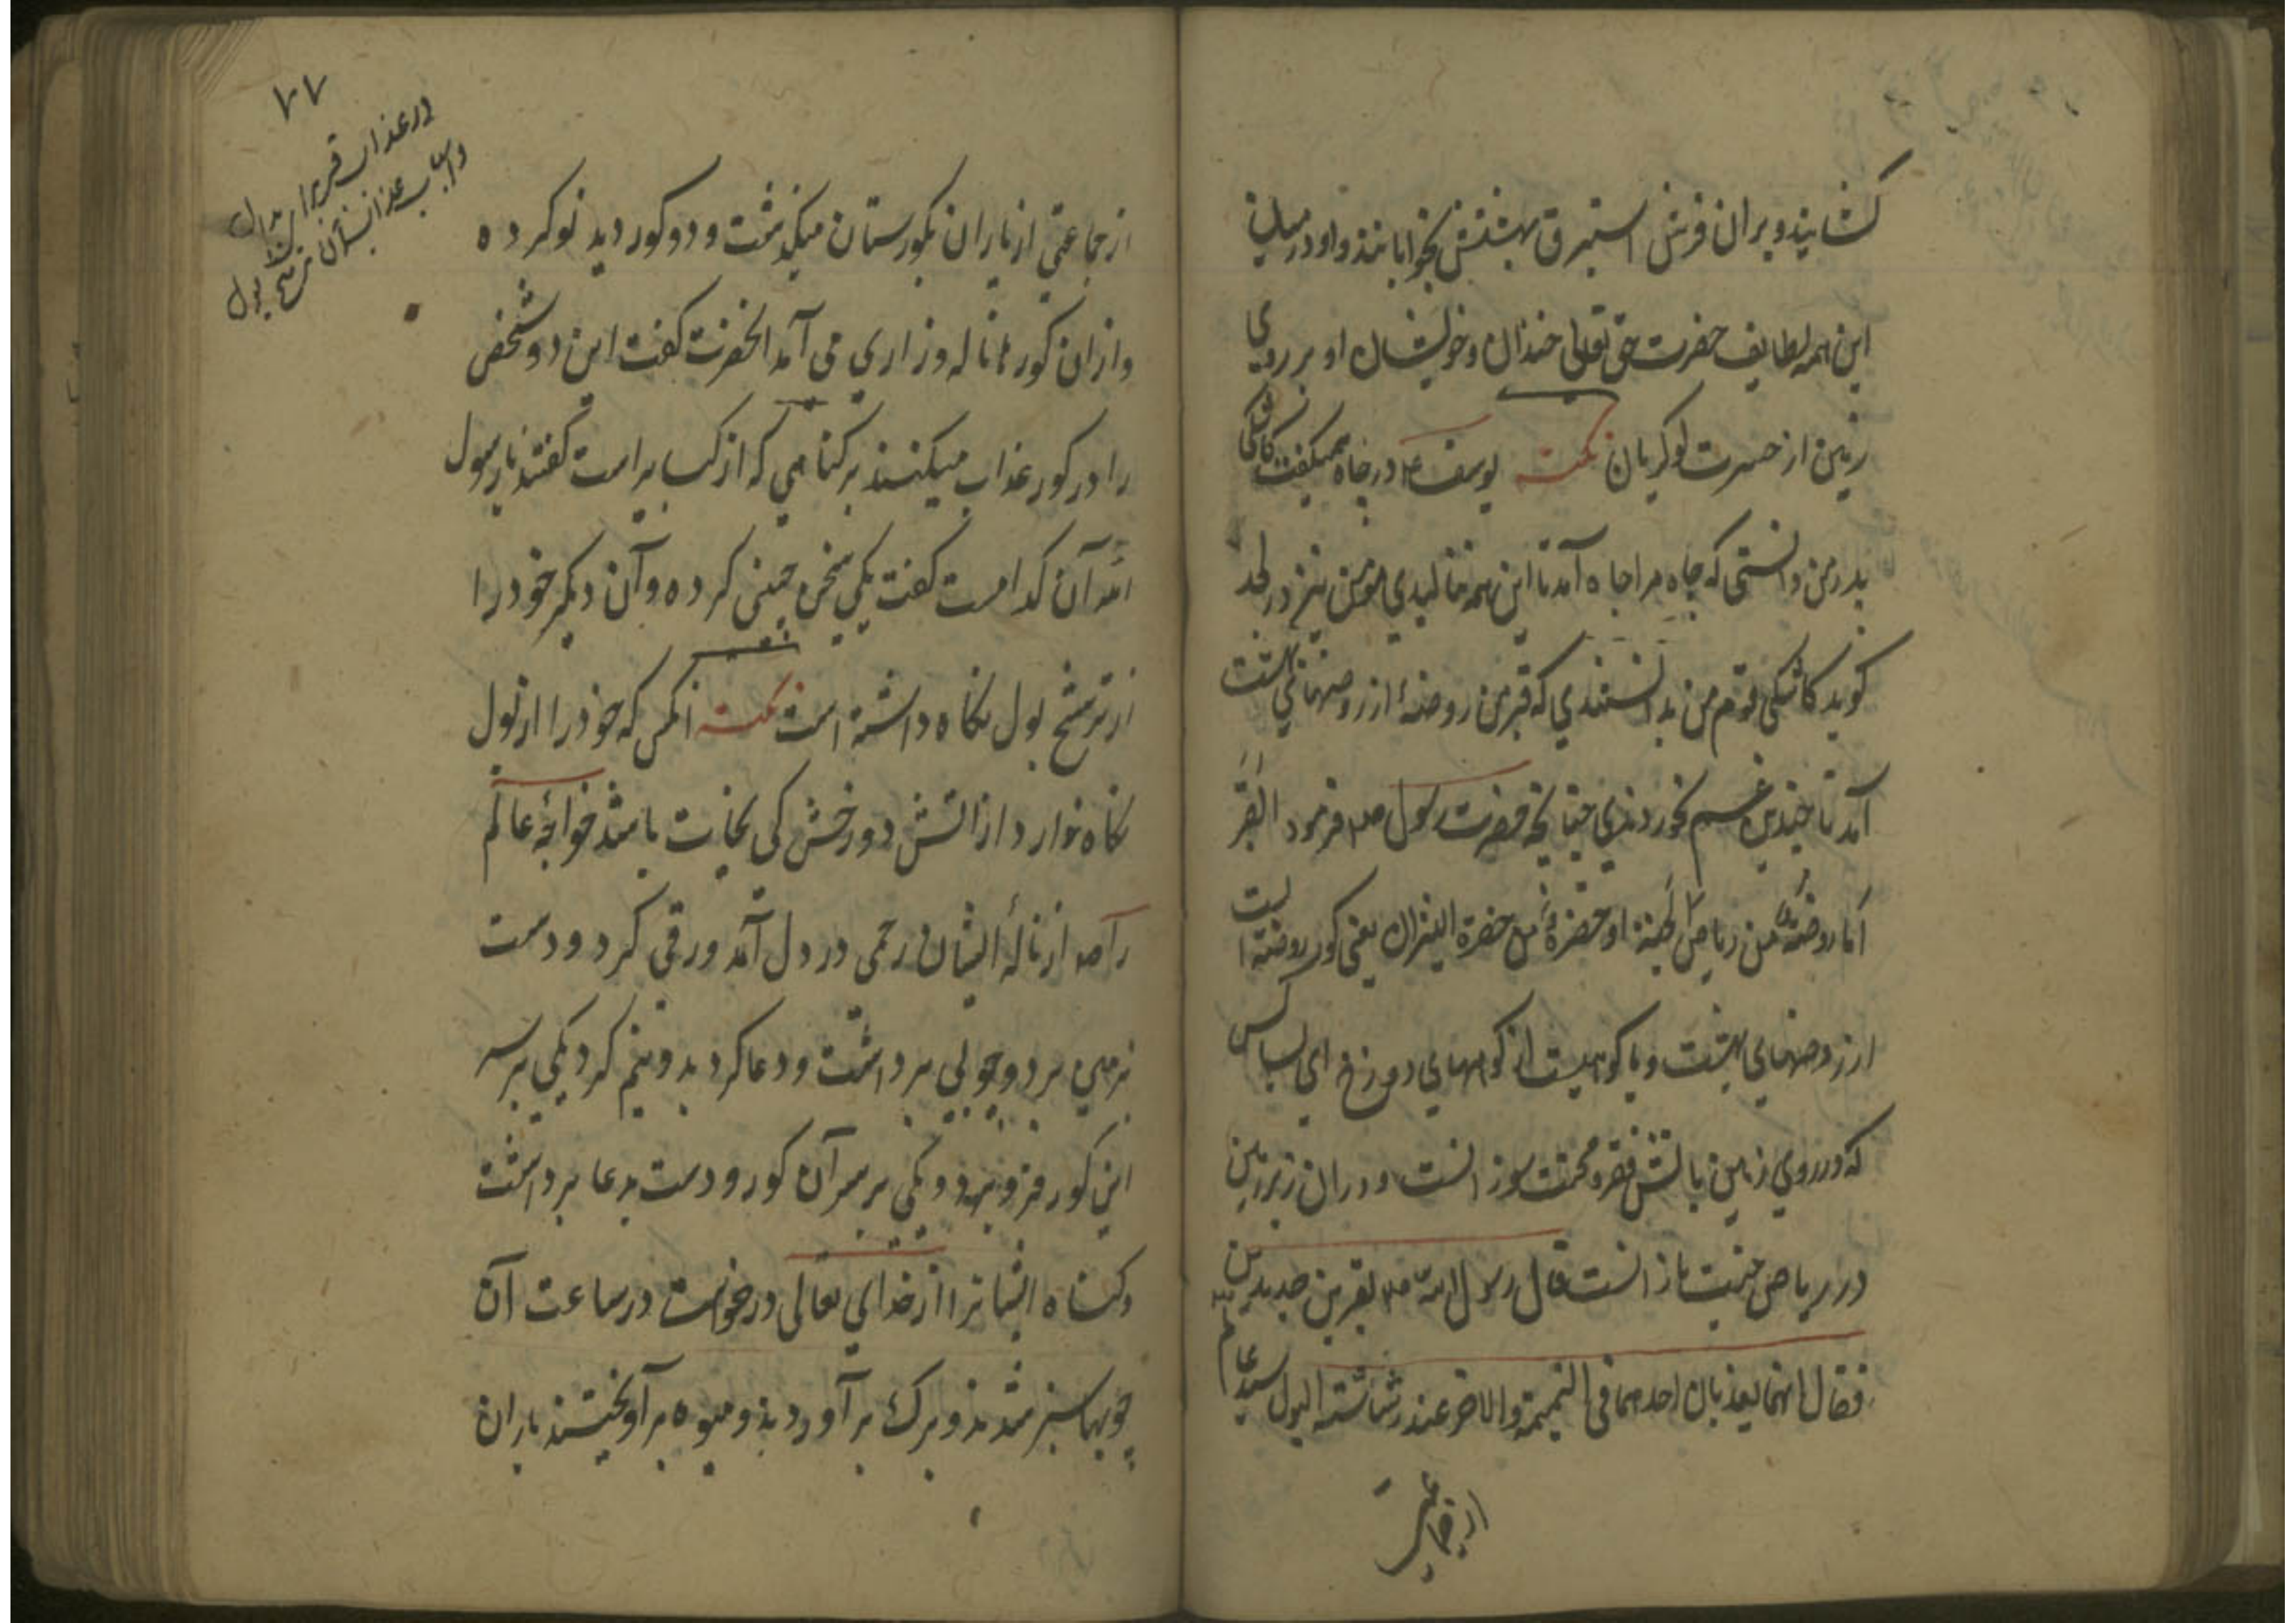 کشایند و بران فرش استبرق بهشتش بخوابانند و او در میان
این همه لطایف حضرت حق تعالی خندان و خویشان او بر روی
زمین از حسرت او کریان نکته یوسف ع م در چاه همیکفت کاشکی
پدر من دانستی که چاه مرا جاه آمد تا این همه نالیدی مومن نیز در لحد
کوید کاشکی قوم من بدانستندی که قبر من روضهٔ از روضهای بهشت
آمد تا چندین غم نخوردندی چنانچه حضرت رسول صلعم فرمود القبر
اما روضة من ریاض الجنة او حفرة من حفرة النیران یعنی کور روضه ایست
از روضهای بهشت و یا کویست از کوهای دوزخ ای بسا کس
که در روی زمین باتش فقر و محنت سوزانست و دران زیر زمین
در ریاض جنت نازانست قال رسول الله صلعم بقبرین جدیدین
فقال انهما یعذبان احدهما فی النمیمة والاخر عند رشاشته البول سید عالم صلعم
از جماعتی
۷۷
در عذاب قبر
و اسباب عذابشان ترشح بول
از جماعتی از یاران بکورستان میکذشت و دو کور دید نو کرده
و از ان کورها ناله و زاری می آمد انحضرت کفت این دو شخص
را در کور عذاب میکنند بر کناهی که از کبایر است کفتند یا رسول
الله آن کدامست کفت یکی سخن چینی کرده و آن دیکر خود را
از ترشح بول نکاه داشته است نکته انکس که خود را از بول
نکاه ندارد از اتش دوزخش کی نجات باشد خواجهٔ عالم
را صلعم از نالهٔ ایشان رحمی در دل آمد و رقی کرد و دست
بزمین برد و چوبی برداشت و دعا کرد بدو نیم کرد یکی بر سر
این کور فرو برد و یکی بر سر آن کور و دست بدعا برداشت
و کناه ایشانرا از خدای تعالی درخواست در ساعت آن
چوبها سبز شدند و برک بر آوردند و میوه بر آویختند یاران